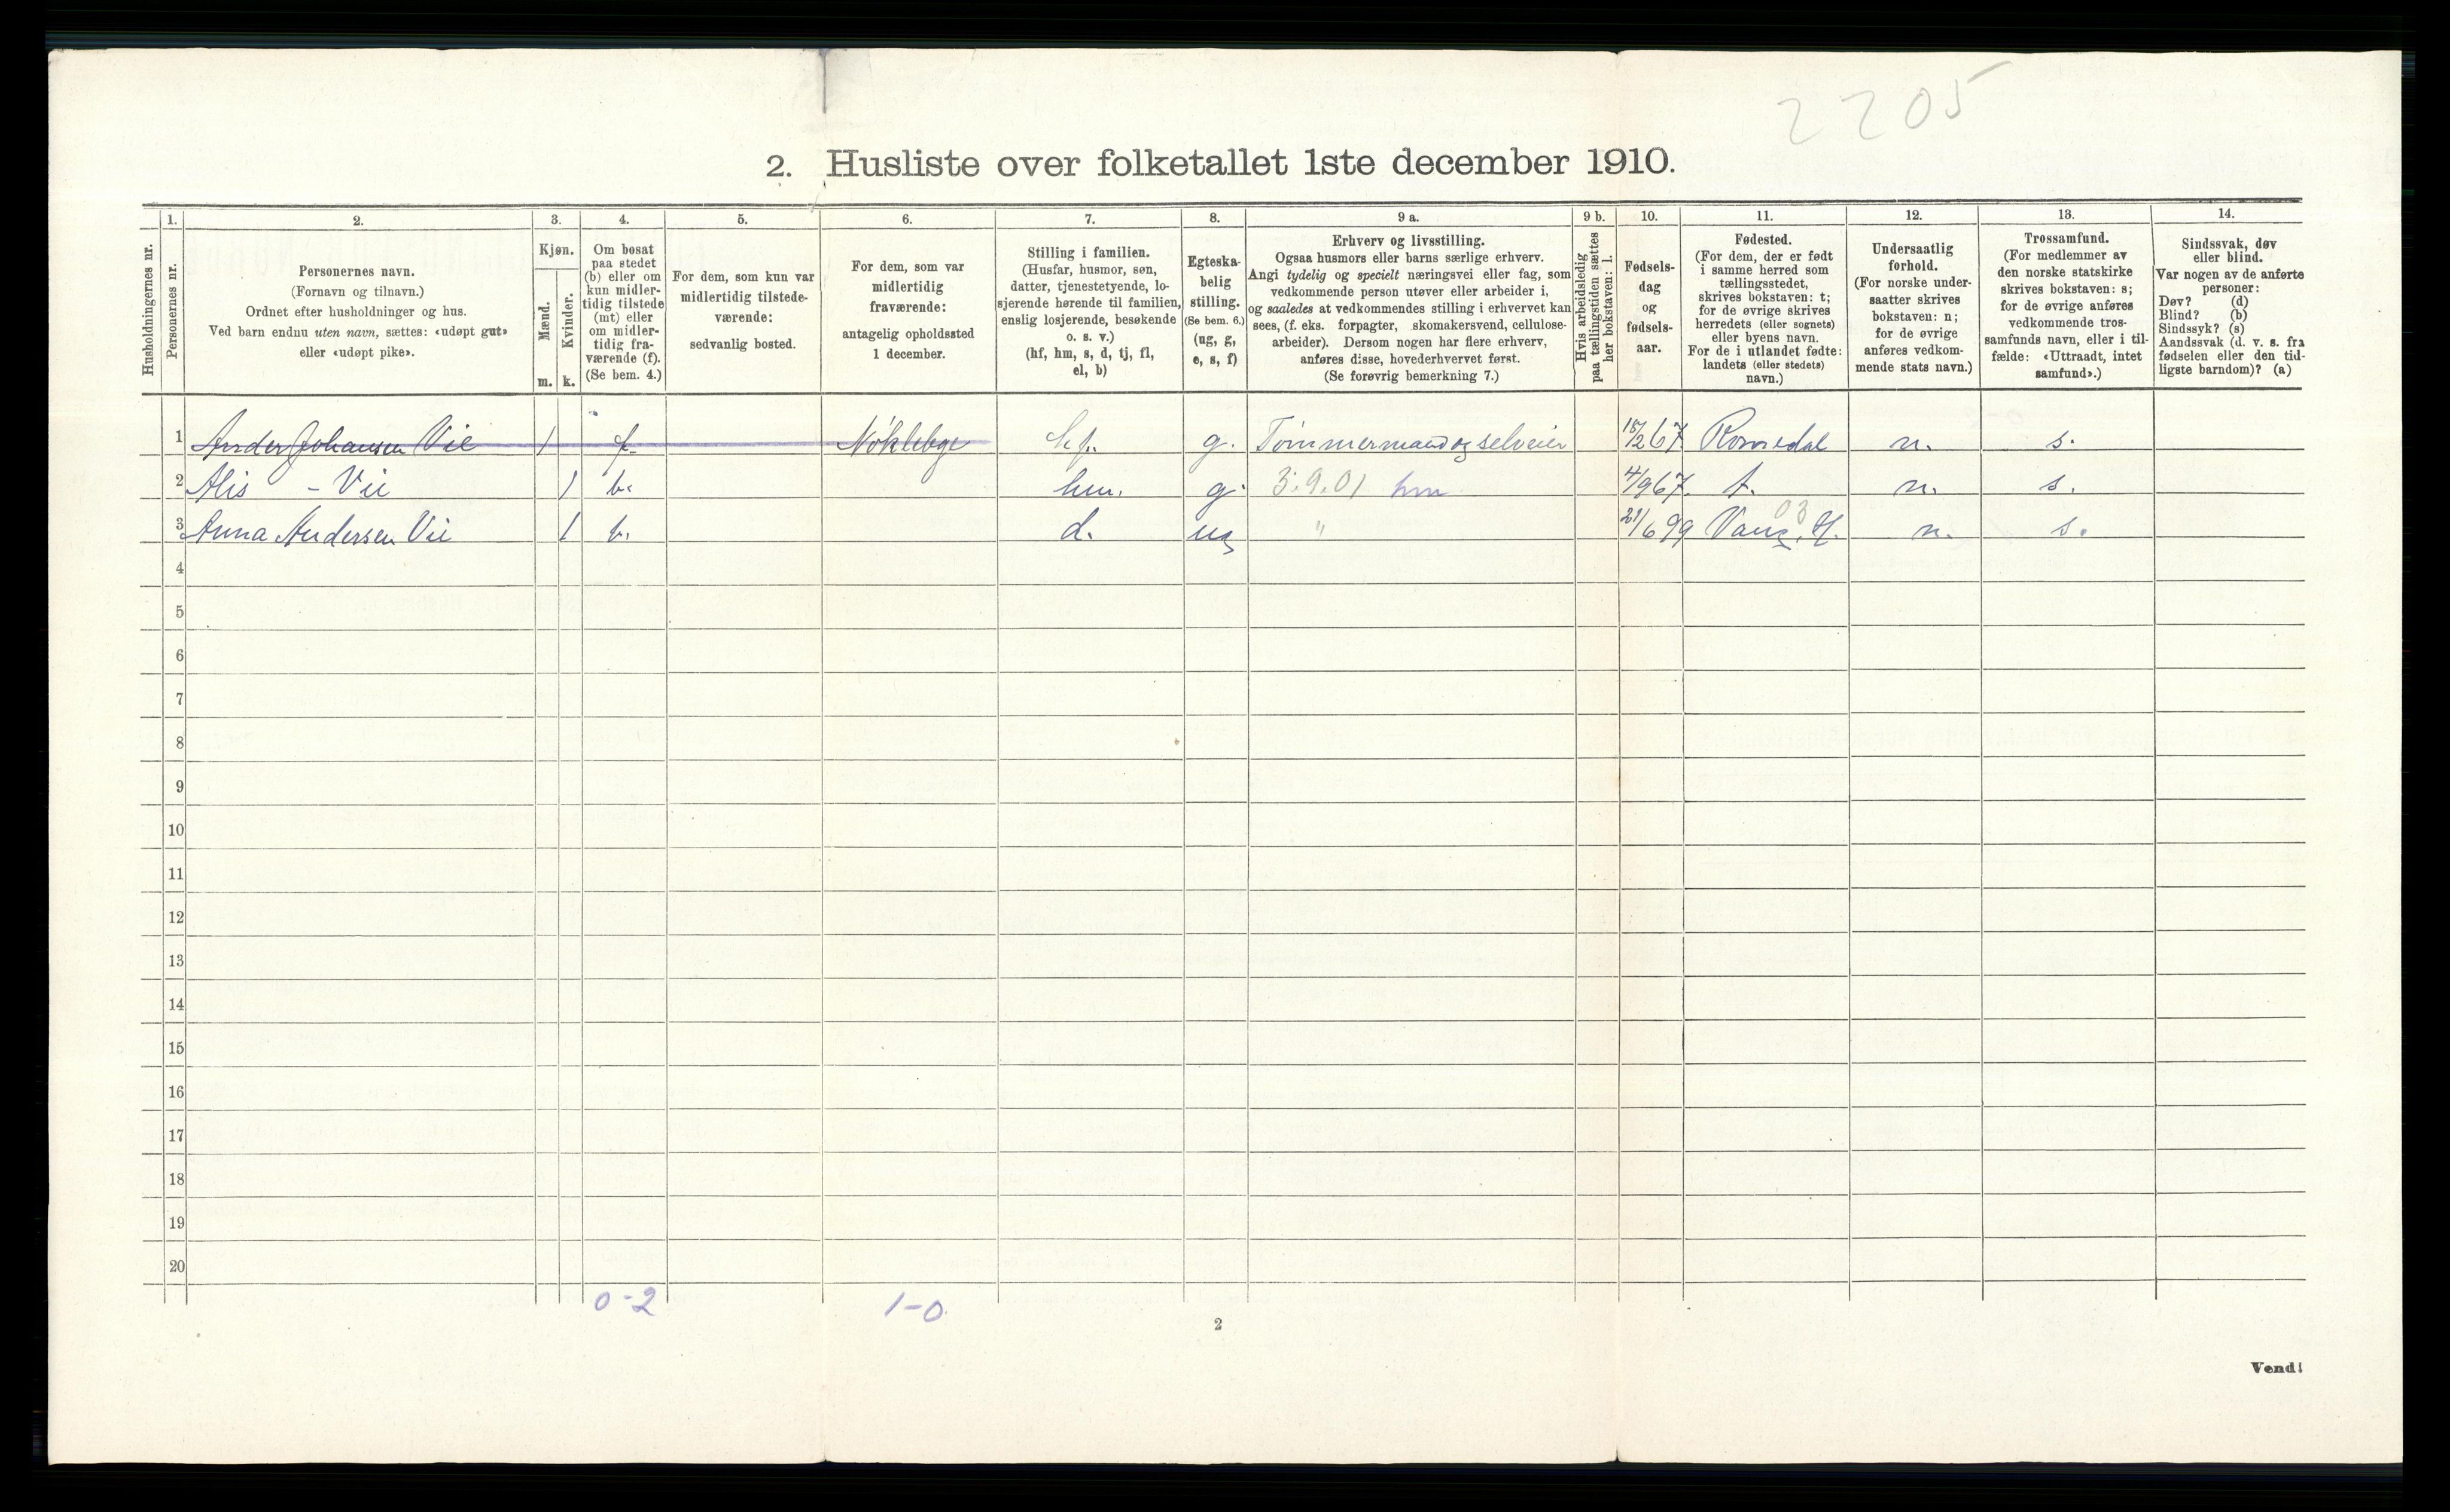 2205
2. Husliste over folketallet 1ste december 1910.
Husholdningernes nr.
1.
Personernes nr.
2.
Personernes navn.
(Fornavn og tilnavn.)
Ordnet efter husholdninger og hus.
Ved barn endnu uten navn, sættes: «udøpt gut»
eller «udøpt pike».
3.
Kjøn.
Mænd.
Kvinder.
m. k.
4.
Om bosat
paa stedet
(b) eller om
kun midler-
tidig tilstede
(mt) eller
om midler-
tidig fra-
værende (f).
(Se bem. 4.)
5.
For dem, som kun var
midlertidig tilstede-
værende:
sedvanlig bosted.
6.
For dem, som var
midlertidig
fraværende:
antagelig opholdssted
1 december.
7.
Stilling i familien.
(Husfar, husmor, søn,
datter, tjenestetyende, lo-
sjerende hørende til familien,
enslig losjerende, besøkende
o. s. v.)
(hf, hm, s, d, tj, fl,
el, b)
8.
Egteska-
belig
stilling.
(Se bem. 6.)
(ug, g,
e, s, f)
9 a.
Erhverv og livsstilling.
Ogsaa husmors eller barns særlige erhverv.
Angi tydelig og specielt næringsvei eller fag, som
vedkommende person utøver eller arbeider i,
og saaledes at vedkommendes stilling i erhvervet kan
sees, (f. eks. forpagter, skomakersvend, cellulose-
arbeider). Dersom nogen har flere erhverv,
anføres disse, hovederhvervet først.
(Se forøvrig bemerkning 7.)
9 b.
Hvis arbeidsledig
paa tællingstiden sættes
her bokstaven: l.
10.
Fødsels-
dag
og
fødsels-
aar.
11.
Fødested.
(For dem, der er født
i samme herred som
tællingsstedet,
skrives bokstaven: t;
for de øvrige skrives
herredets (eller sognets)
eller byens navn.
For de i utlandet fødte:
landets (eller stedets)
navn.)
12.
Undersaatlig
forhold.
(For norske under-
saatter skrives
bokstaven: n;
for de øvrige
anføres vedkom-
mende stats navn.)
13.
Trossamfund.
(For medlemmer av
den norske statskirke
skrives bokstaven: s;
for de øvrige anføres
vedkommende tros-
samfunds navn, eller i til-
fælde: «Uttraadt, intet
samfund».)
14.
Sindssvak, døv
eller blind.
Var nogen av de anførte
personer:
Døv? (d)
Blind? (b)
Sindssyk? (s)
Aandssvak (d. v. s. fra
fødselen eller den tid-
ligste barndom)? (a)
1 Anders Johansen Vie 1 f. Nøklebye hf. g. Tømmermand og selveier 18/2 67 Romedal n. s.
2 Alis - Vie 1 b. hm. g. 3.9.01 hm 4/9 67. t. n. s.
3 Anna Andersen Vie 1 b. d. ug " 21/6 99 Vang. H. 03 n. s.
4
5
6
7
8
9
10
11
12
13
14
15
16
17
18
19
20
0-2 1-0
2
Vend!